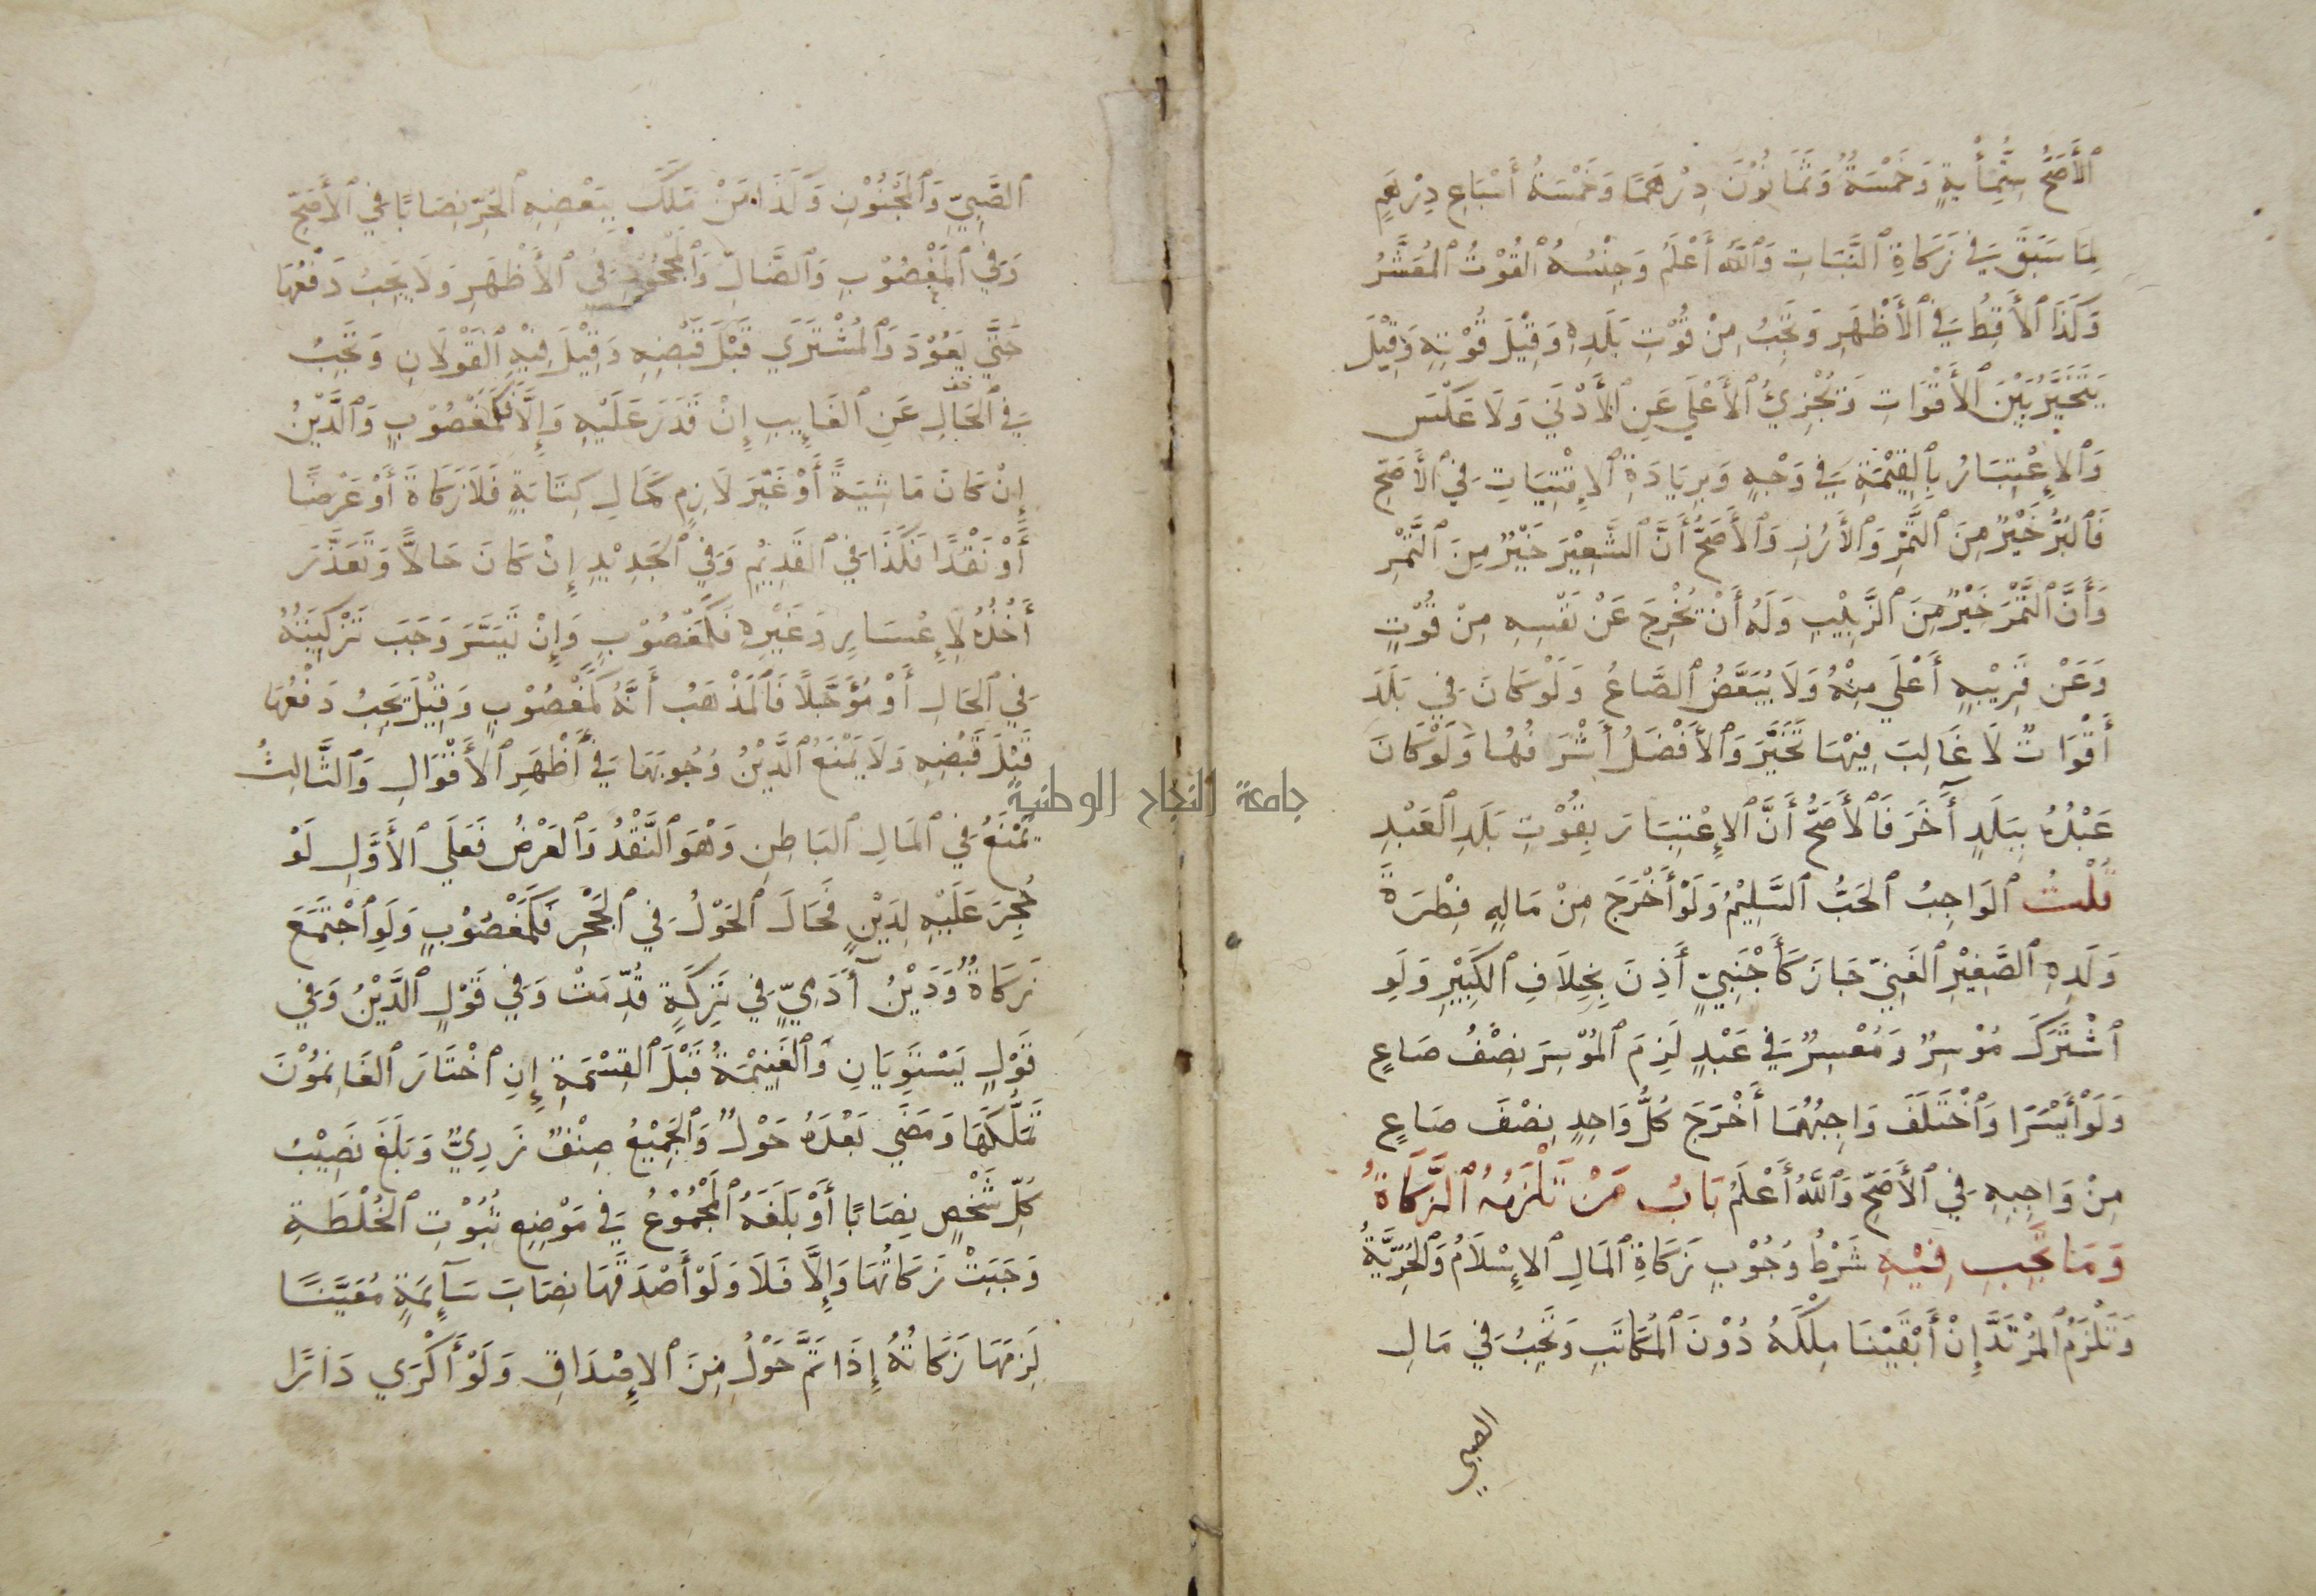 ٱلْأَصَحُّ سِتُّمِأْيةٍ وَخَمْسَةٌ وَثَمَانُوْنَ دِرْهَمًا وَخَمْسَةُ أَسْبَاعِ دِرْهَمٍ
لِمَا سَبَقَ فِي زَكَاةِ ٱلنَّبَاتِ وَٱللهُ أَعْلَمُ وَجِنْسُهُ ٱلْقُوْتُ ٱلْمُعَشَّرُ
وَكَذَا ٱلْأَقِطُ فِي ٱلْأَظْهَرِ وَتَجِبُ مِنْ قُوْتِ بَلَدِهِ وَقِيْلَ قُوْتِهِ وَقِيْلَ
يَتَخَيَّرُ بَيْنَ ٱلْأَقْوَاتِ وَتُجْزِئُ ٱلْأَعْلَي عَنِ ٱلْأَدْنَي وَلَا عَكْسَ
وَٱلْإِعْتِبَارُ بِٱلْقِيْمَةِ فِي وَجْهٍ وَبِزِيَادَةِ ٱلْإِقْتِيَاتِ فِي ٱلْأَصَحِّ
فَٱلْبُرُّ خَيْرٌ مِنَ ٱلتَّمْرِ وَٱلْأَرُزِ وَٱلْأَصَحُّ أَنَّ ٱلشَّعِيْرَ خَيْرٌ مِنَ ٱلتَّمْرِ
وَأَنَّ ٱلتَّمْرَ خَيْرٌ مِنَ ٱلزَّبِيْبِ وَلَهُ أَنْ يُخْرِجَ عَنْ نَفْسِهِ مِنْ قُوْتٍ
وَعَنْ قَرِيْبِهِ أَعْلَي مِنْهُ وَلَا يُبَعَّضُ ٱلصَّاعُ وَلَوْ كَانَ فِي بَلَدَ
أَقْوَاتٌ لَا غَالِبَ فِيْهَا تَخَيَّرَ وَٱلْأَفْضَلُ أَشْرَفُهَا وَلَوْ كَانَ
عَبْدُهُ بِبَلَدٍ آخَرَ فَٱلْأَصَحُّ أَنَّ ٱلْإِعْتِبَارَ بِقُوْتِ بَلَدِ ٱلْعَبْدِ
قُلْتُ ٱلْوَاجِبُ ٱلْحَبُّ ٱلسَّلِيْمُ وَلَوْ أَخْرَجَ مِنْ مَالِهِ فِطْرَةَ
وَلَدِهِ ٱلصَّغِيْرِ ٱلْغَنِيِّ جَازَ كَأَجْنَبِيٍّ أَذِنَ بِخِلَافِ ٱلْكَبِيْرِ وَلَوِ
ٱشْتَرَكَ مُوْسِرٌ وَمُعْسِرٌ فِي عَبْدٍ لَزِمَ ٱلْمُوْسِرَ نِصْفُ صَاعٍ
وَلَوْ أَيْسَرَا وَٱخْتَلَفَ وَاجِبُهُمَا أَخْرَجَ كُلُّ وَاحِدٍ نِصْفَ صَاعٍ
مِنْ وَاجِبِهِ فِي ٱلْأَصَحِّ وَٱللهُ أَعْلَمُ بَابُ مَنْ تَلْزَمُهُ ٱلزَّكَاةُ
وَمَا تَجِبُ فِيْهِ شَرْطُ وُجُوْبِ زَكَاةِ ٱلْمَالِ ٱلْإِسْلَامُ وَٱلْحُرِّيَّةُ
وَتَلْزَمُ ٱلْمُرْتَدَّ إِنْ أَبْقَيْنَا مِلْكَهُ دُوْنَ ٱلْمُكَاتَبِ وَتَجِبُ فِي مَالِ
الصبي
ٱلصَّبِيِّ وَٱلْمَجْنُوْنِ وَكَذَا مَنْ مَلَكَ بِبَعْضِهِ ٱلْحُرِّ نِصَابًا فِي ٱلْأَصَحِّ
وَفِي ٱلْمَغْصُوْبِ وَٱلضَّالِّ وَٱلْمَجْحُوْدِ فِي ٱلْأَظْهَرِ وَلَا يَجِبُ دَفْعُهَا
حَتَّي يَعُوْدَ وَٱلْمُشْتَرَي قَبْلَ قَبْضِهِ وَقِيْلَ فِيْهِ ٱلْقَوْلَانِ وَتَجِبُ
فِي ٱلْحَالِ عَنِ ٱلْغَايِبِ إِنْ قَدَرَ عَلَيْهِ وَإِلَّا فَكَمَغْصُوْبٍ وَٱلدَّيْنُ
إِنْ كَانَ مَاشِيَةً أَوْ غَيْرَ لَازِمٍ كَمَالِ كِتَابَةٍ فَلَا زَكَاةَ أَوْ عَرْضًا
أَوْ نَقْدًا فَكَذَا فِي ٱلْقَدِيْمِ وَفِي ٱلْجَدِيْدِ إِنْ كَانَ حَالًّا وَتَعَذَّرَ
أَخْذُهُ لِإِعْسَارٍ وَغَيْرِهِ فَكَمَغْصُوْبٍ وَإِنْ تَيَسَّرَ وَجَبَ تَزْكِيَتُهُ
فِي ٱلْحَالِ أَوْ مُؤَجَّلًا فَٱلْمَذْهَبُ أَنَّهُ كَمَغْصُوْبٍ وَقِيْلَ يَجِبُ دَفْعُهَا
قَبْلَ قَبْضِهِ وَلَا يَمْنَعُ ٱلدَّيْنُ وُجُوبَهَا فِي أَظْهَرِ ٱلْأَقْوَالِ وَٱلثَّالِثُ
يَمْنَعُ فِي ٱلْمَالِ ٱلْبَاطِنِ وَهْوَ ٱلنَّقْدُ وَٱلْعَرْضُ فَعَلَي ٱلْأَوَّلِ لَوْ
حُجِرَ عَلَيْهِ لِدَيْنٍ فَحَالَ ٱلْحَوْلُ فِي ٱلْحَجْرِ فَكَمَغْصُوْبٍ وَلَوِ ٱجْتَمَعَ
زَكَاةٌ وَدَيْنُ آدَمِيٍّ فِي تَرِكَةٍ قُدِّمَتْ وَفِي قَوْلٍ ٱلدَّيْنُ وَفِي
قَوْلٍ يَسْتَوِيَانِ وَٱلْغَنِيْمَةُ قَبْلَ ٱلْقِسْمَةِ إِنِ ٱخْتَارَ ٱلْغَانِمُوْنَ
تَمَلُّكَهَا وَمَضَي بَعْدَهُ حَوْلٌ وَٱلْجَمِيْعُ صِنْفٌ زَكَوِيٌّ وَبَلَغَ نَصِيْبُ
كُلِّ شَخْصٍ نِصَابًا أَوْ بَلَغَهُ ٱلْمَجْمُوْعُ فِي مَوْضِعِ ثُبُوْتِ ٱلْخُلْطَةِ
وَجَبَتْ زَكَاتُهَا وَإِلَّا فَلَا وَلَوْ أَصْدَقَهَا نِصَابَ سَآئِمَةٍ مُعَيَّنًا
لَزِمَهَا زَكَاتُهُ إِذَا تَمَّ حَوْلٌ مِنَ ٱلْإِصْدَاقِ وَلَوْ أَكْرَي دَارًا
جامعة النجاح الوطنية